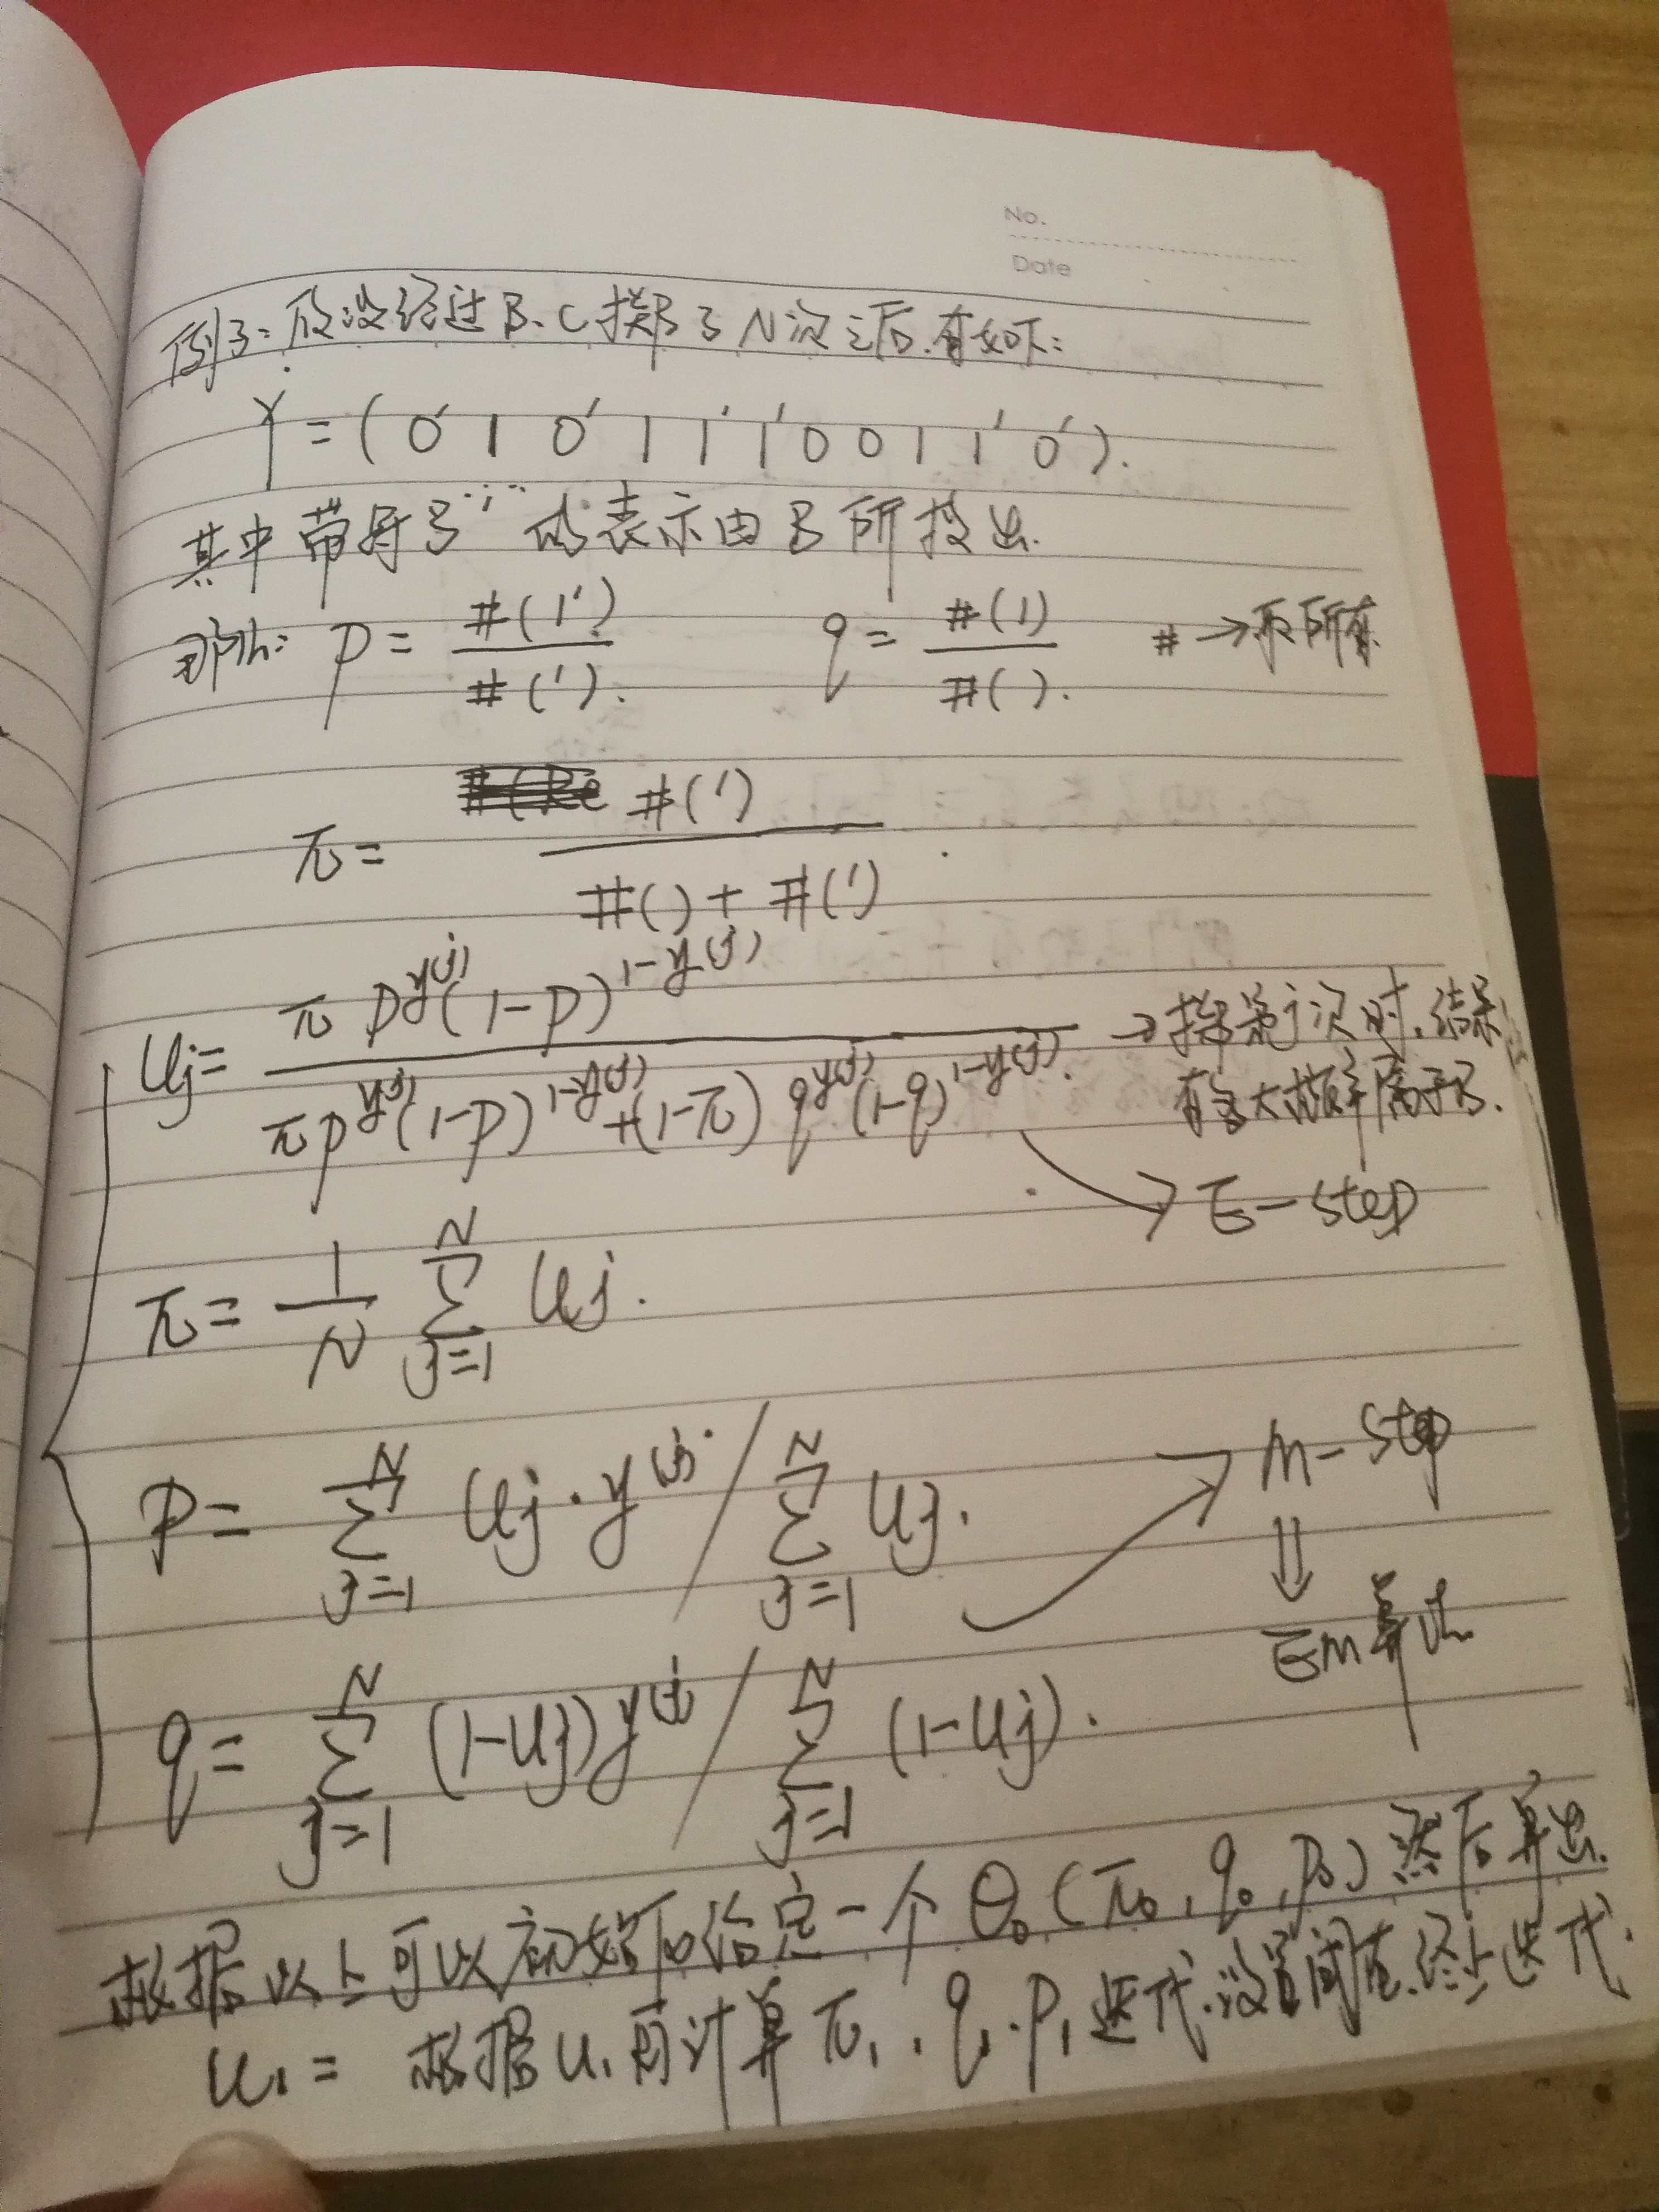 No.
Date
例子:假设经过B、C掷了N次之后.有如下:
Y = ( 0' 1 0' 1 1' 1' 0 0 1 1' 0' ).
其中带符号"'"的表示由B所投出.
那么: p = #(1') / #('). q = #(1) / #(). # → 取所有
π = #(') / #() + #(').
uj = π p^y(j) (1-p)^1-y(j) / π p^y(j) (1-p)^1-y(j) + (1-π) q^y(j) (1-q)^1-y(j). → 掷第j次时.结果
有多大概率属于B.
→ E-step
π = 1/N ∑_{j=1}^{N} uj.
p = ∑_{j=1}^{N} uj · y(j) / ∑_{j=1}^{N} uj. → M-step
⇓
EM算法
q = ∑_{j=1}^{N} (1-uj) y(j) / ∑_{j=1}^{N} (1-uj).
根据以上可以初始给定一个 θ0 (π0, q0, p0) 然后算出
u1 = 根据u1可计算π1, q1. p1 迭代.设置阈值.终止迭代.